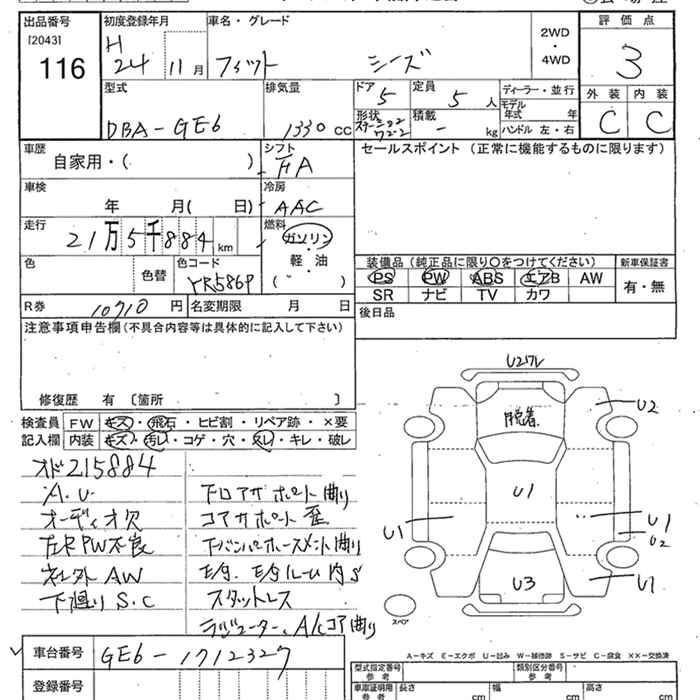 出品番号 初度登録年月 車名・グレード 2WD・4WD 評価点
[2043]
116 H 24 11月 フィット シーズ 3
型式 排気量 ドア 定員 ディーラー・並行 外装 内装
5 5人 モデル年式 年
DBA-GE6 1330cc 形状 積載 - kg ハンドル 左・右 C C
車歴 自家用・( ) シフト FA セールスポイント(正常に機能するものに限ります)
車検 年 月( 日) 冷房 AAC
走行 21万5千884km 燃料 ガソリン 軽・油 ( )
色 色替 色コード YR586P 装備品(純正品に限り○をつけてください) 新車保証書
PS PW ABS エアB AW 有・無
SR ナビ TV カワ
R券 10710円 名変期限 月 日 後日品
注意事項申告欄(不具合内容等は具体的に記入して下さい)
修復歴 有 [箇所 ]
検査員 FW キズ・飛石・ヒビ割・リペア跡・×要
記入欄 内装 キズ・汚れ・コゲ・穴・スレ・キレ・破レ
オド215884
A.U. 下ロアサポート曲り
オーディオ欠 コアサポート歪
左R PW不良 下バンパホースメント曲り
社外AW
下廻りS.C スタットレス
ラジエーター、A/Cコア曲り
U2ワレ
脱着
U2
U1
U1
U1
U2
U3
U1
スペア
A-キズ E-エクボ U-凹み W-補修跡 S-サビ C-腐食 XX-交換済
車台番号 GE6-1712327
登録番号
型式指定番号 参考 類別区分番号 参考
車庫証明用 参考 長さ cm 幅 cm 高さ cm